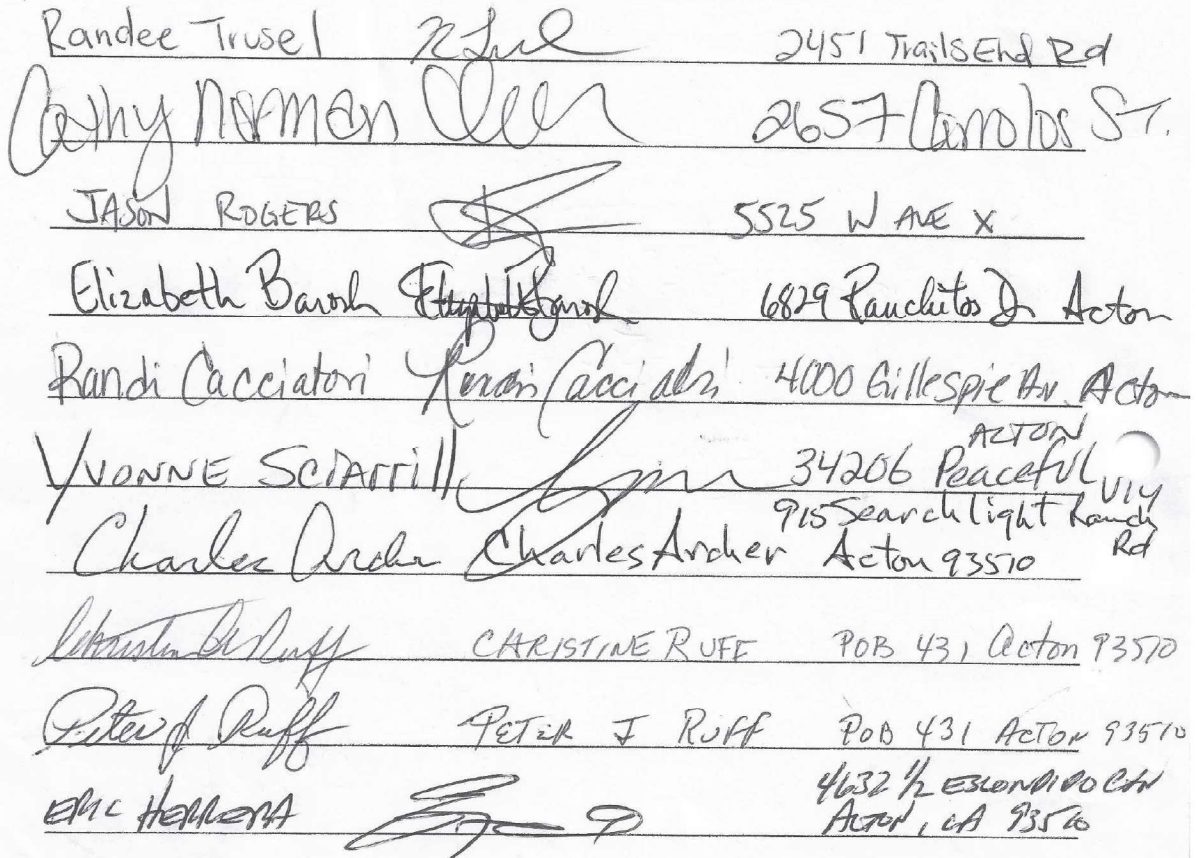 Randee Trusel 2451 Trails End Rd
Cathy Norman 2657 Carrolos St.
JASON ROGERS 5525 W AVE X
Elizabeth Barosh Elizabeth Barosh 6829 Ranchitos Dr Acton
Randi Cacciatori Randi Cacciatori 4000 Gillespie Av. Acton
ACTON
YVONNE SCIARRILL 34206 Peaceful Vly
915 Searchlight Ranch Rd
Charles Archer Charles Archer Acton 93510
CHRISTINE RUFF POB 431 Acton 93510
Peter J Ruff PETER J RUFF POB 431 ACTON 93510
4632 1/2 ESCONDIDO CYN
ERIC HERRERA ACTON, CA 93510